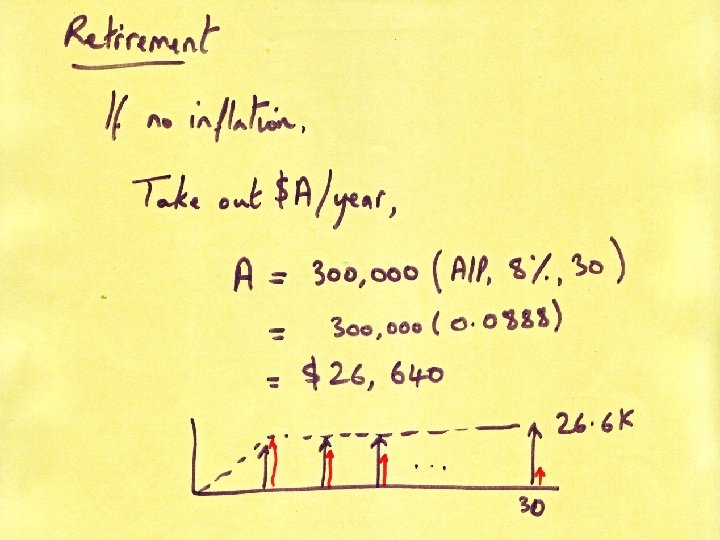 Retirement
If no inflation,
Take out $A/year,
A = 300,000 (A/P, 8%, 30)
= 300,000 (0.0888)
= $26,640
26.6K
...
30